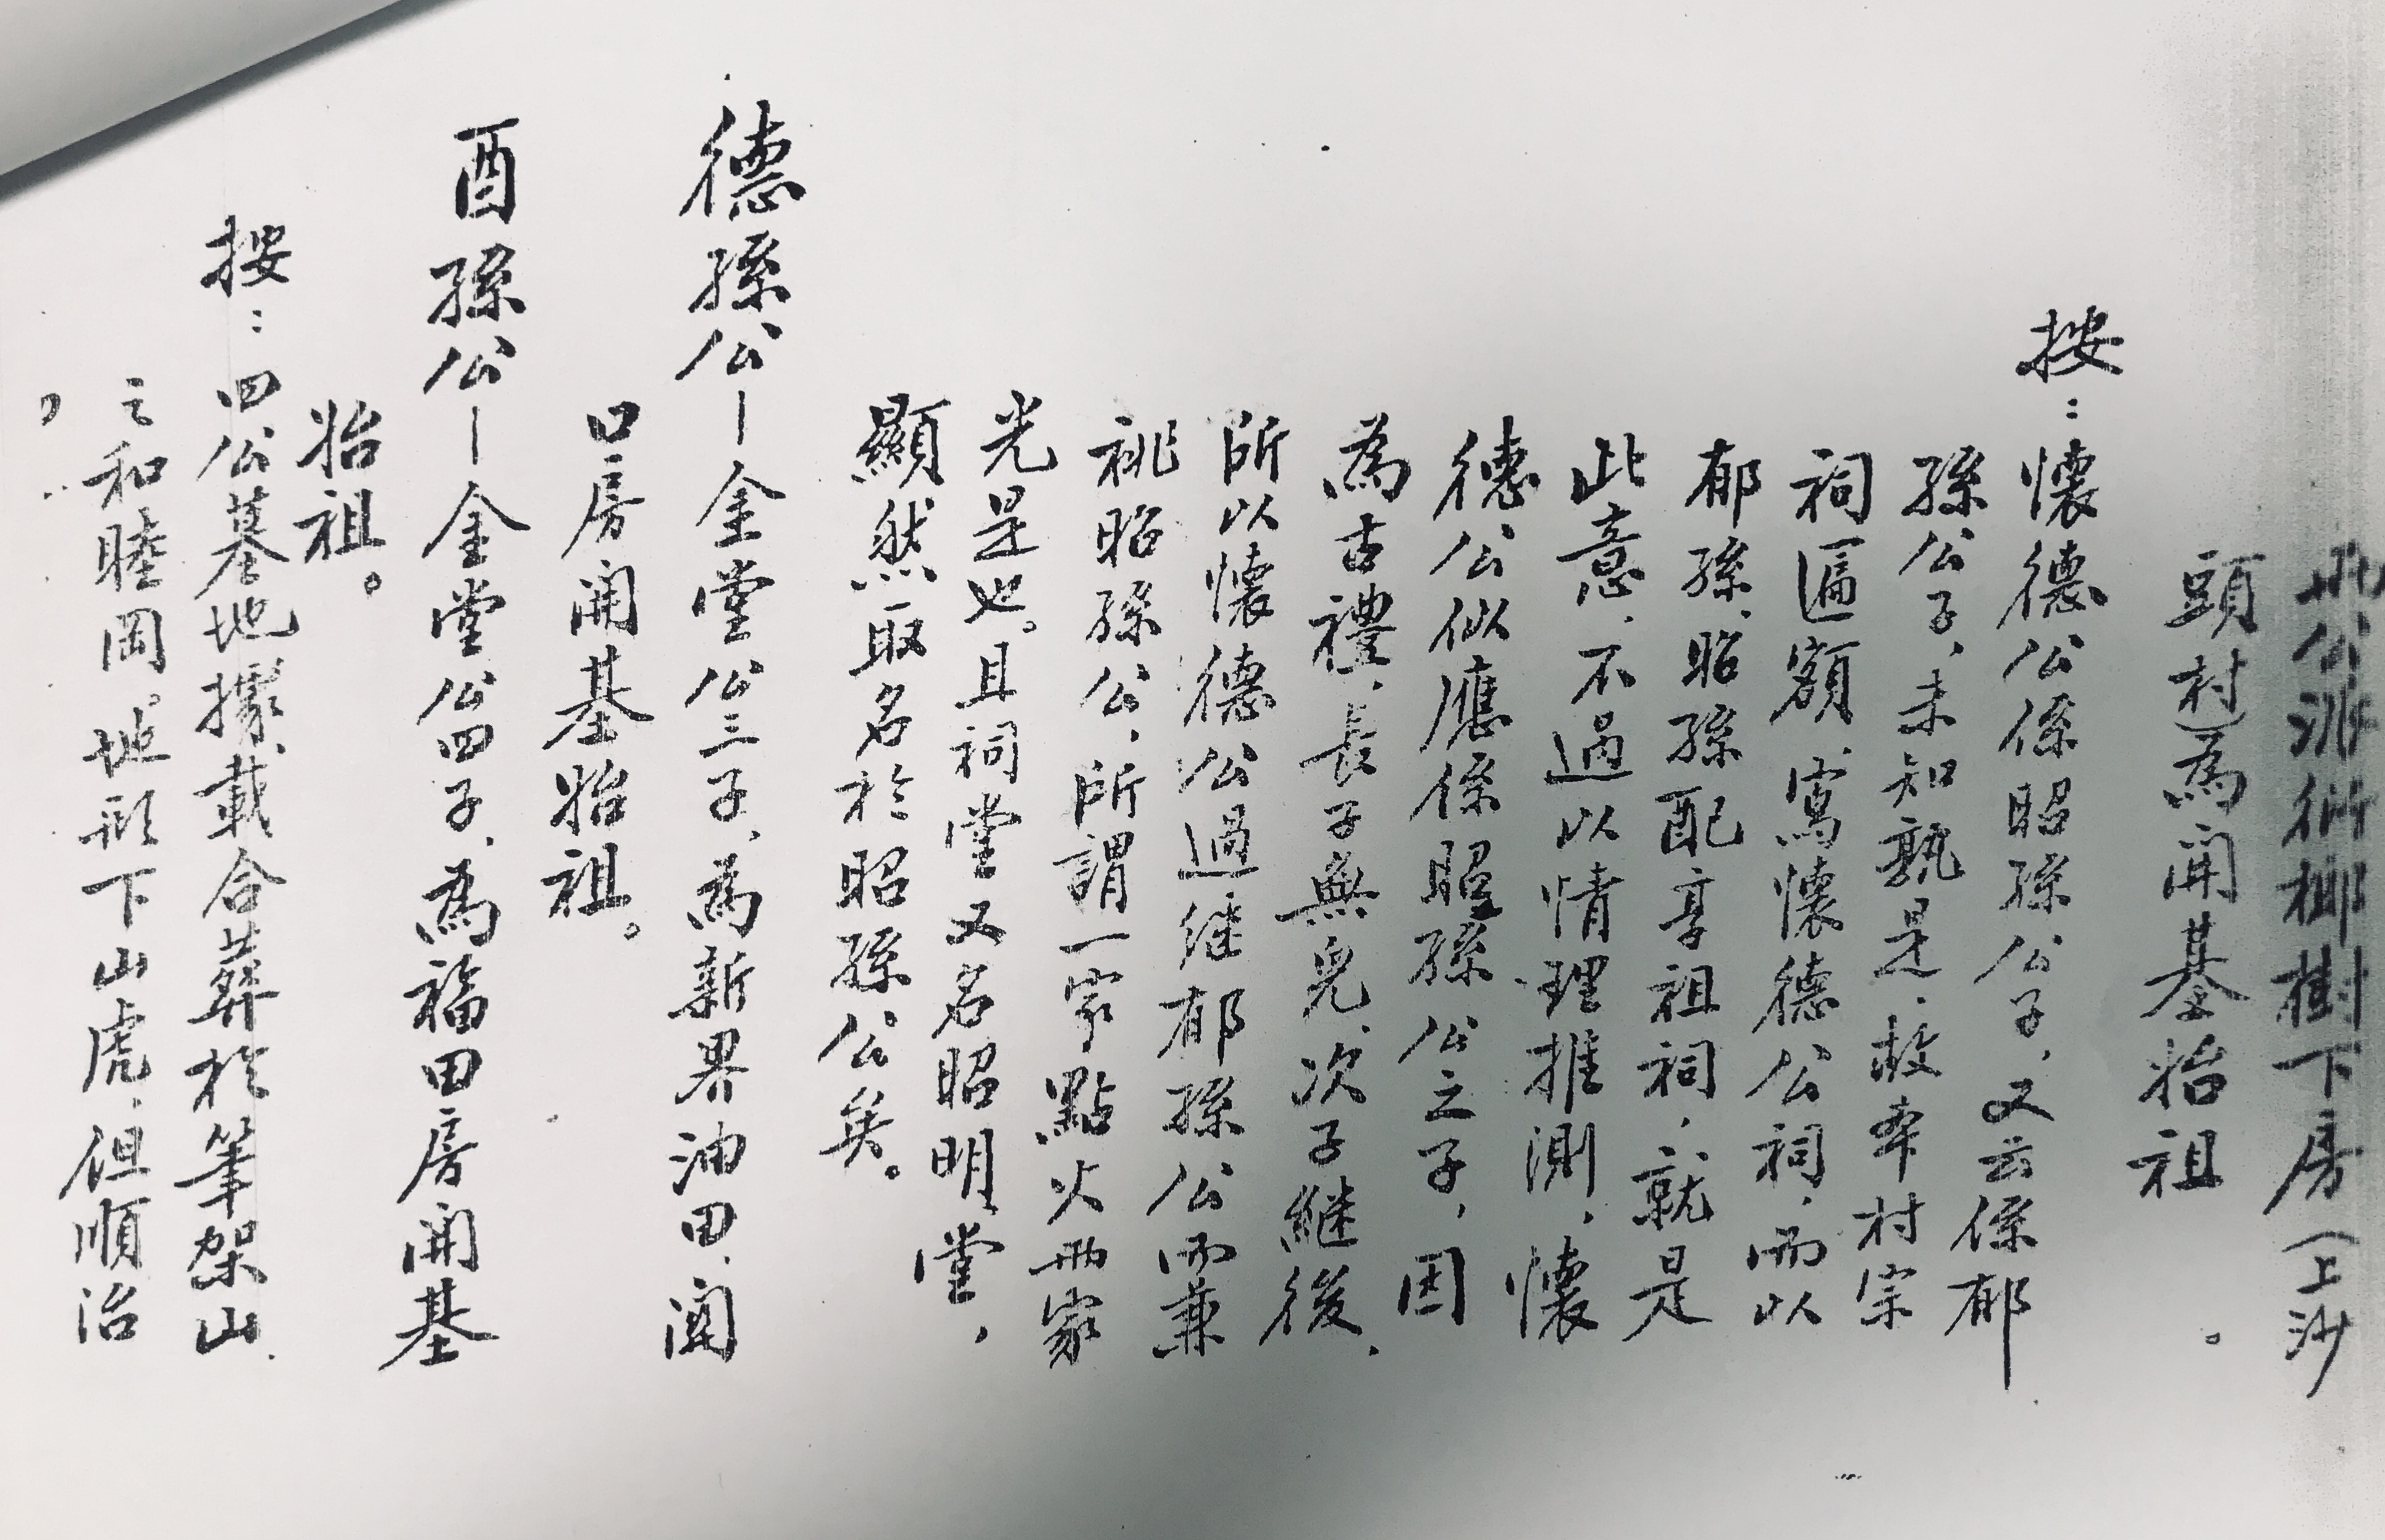 此公派衍椰樹下房(上沙
頭村)為開基始祖。
按:懷德公係昭孫公子,又云係郁
孫公子,未知孰是,故本村宗
祠匾額,寫懷德公祠,而以
郁孫、昭孫配享祖祠,就是
此意,不過以情理推測,懷
德公似應係昭孫公之子,因
為古禮,長子無兒,次子繼後,
所以懷德公過继郁孫公而兼
祧昭孫公,所謂一家點火兩家
光是也。且祠堂又名昭明堂,
顯然取名於昭孫公矣。
德孫公—金堂公三子,為新界油田、閘
口房開基始祖。
酉孫公—金堂公四子,為福田房開基
始祖。
按:四公墓地據載合葬於筆架山
之和睦岡,地形下山虎,但順治